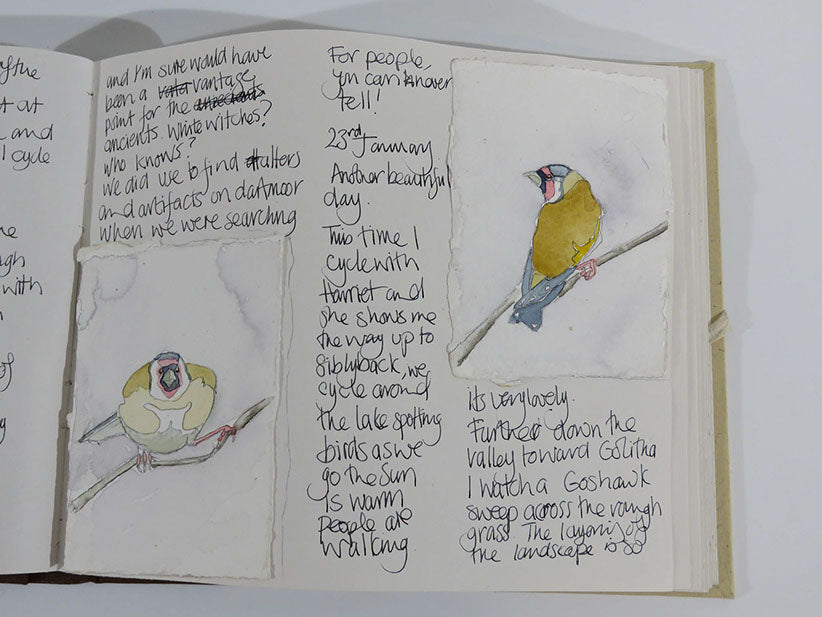 of the
at
and
I cycle
with
of
and I'm sure would have
been a vantage
point for the
ancients. White witches?
who knows?
we did use to find alters
and artifacts on dartmoor
when we were searching
For people,
you can never
tell!
23rd January
Another beautiful
day.
This time I
cycle with
Harriet and
she shows me
the way up to
Siblyback, we
cycle around
the lake spotting
birds as we
go the sun
is warm
people are
walking
its very lovely.
Further down the
valley toward Golitha
I watch a Goshawk
sweep across the rough
grass. The layering of
the landscape is so